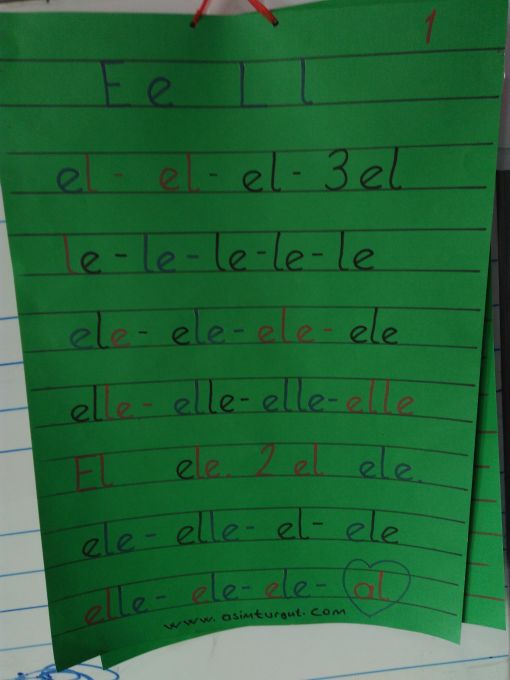 1
E e L l
el - el - el - 3 el
le - le - le - le - le
ele - ele - ele - ele
elle - elle - elle - elle
El ele. 2 el ele.
ele - elle - el - ele
elle - ele - ele - al
www.asimturgut.com